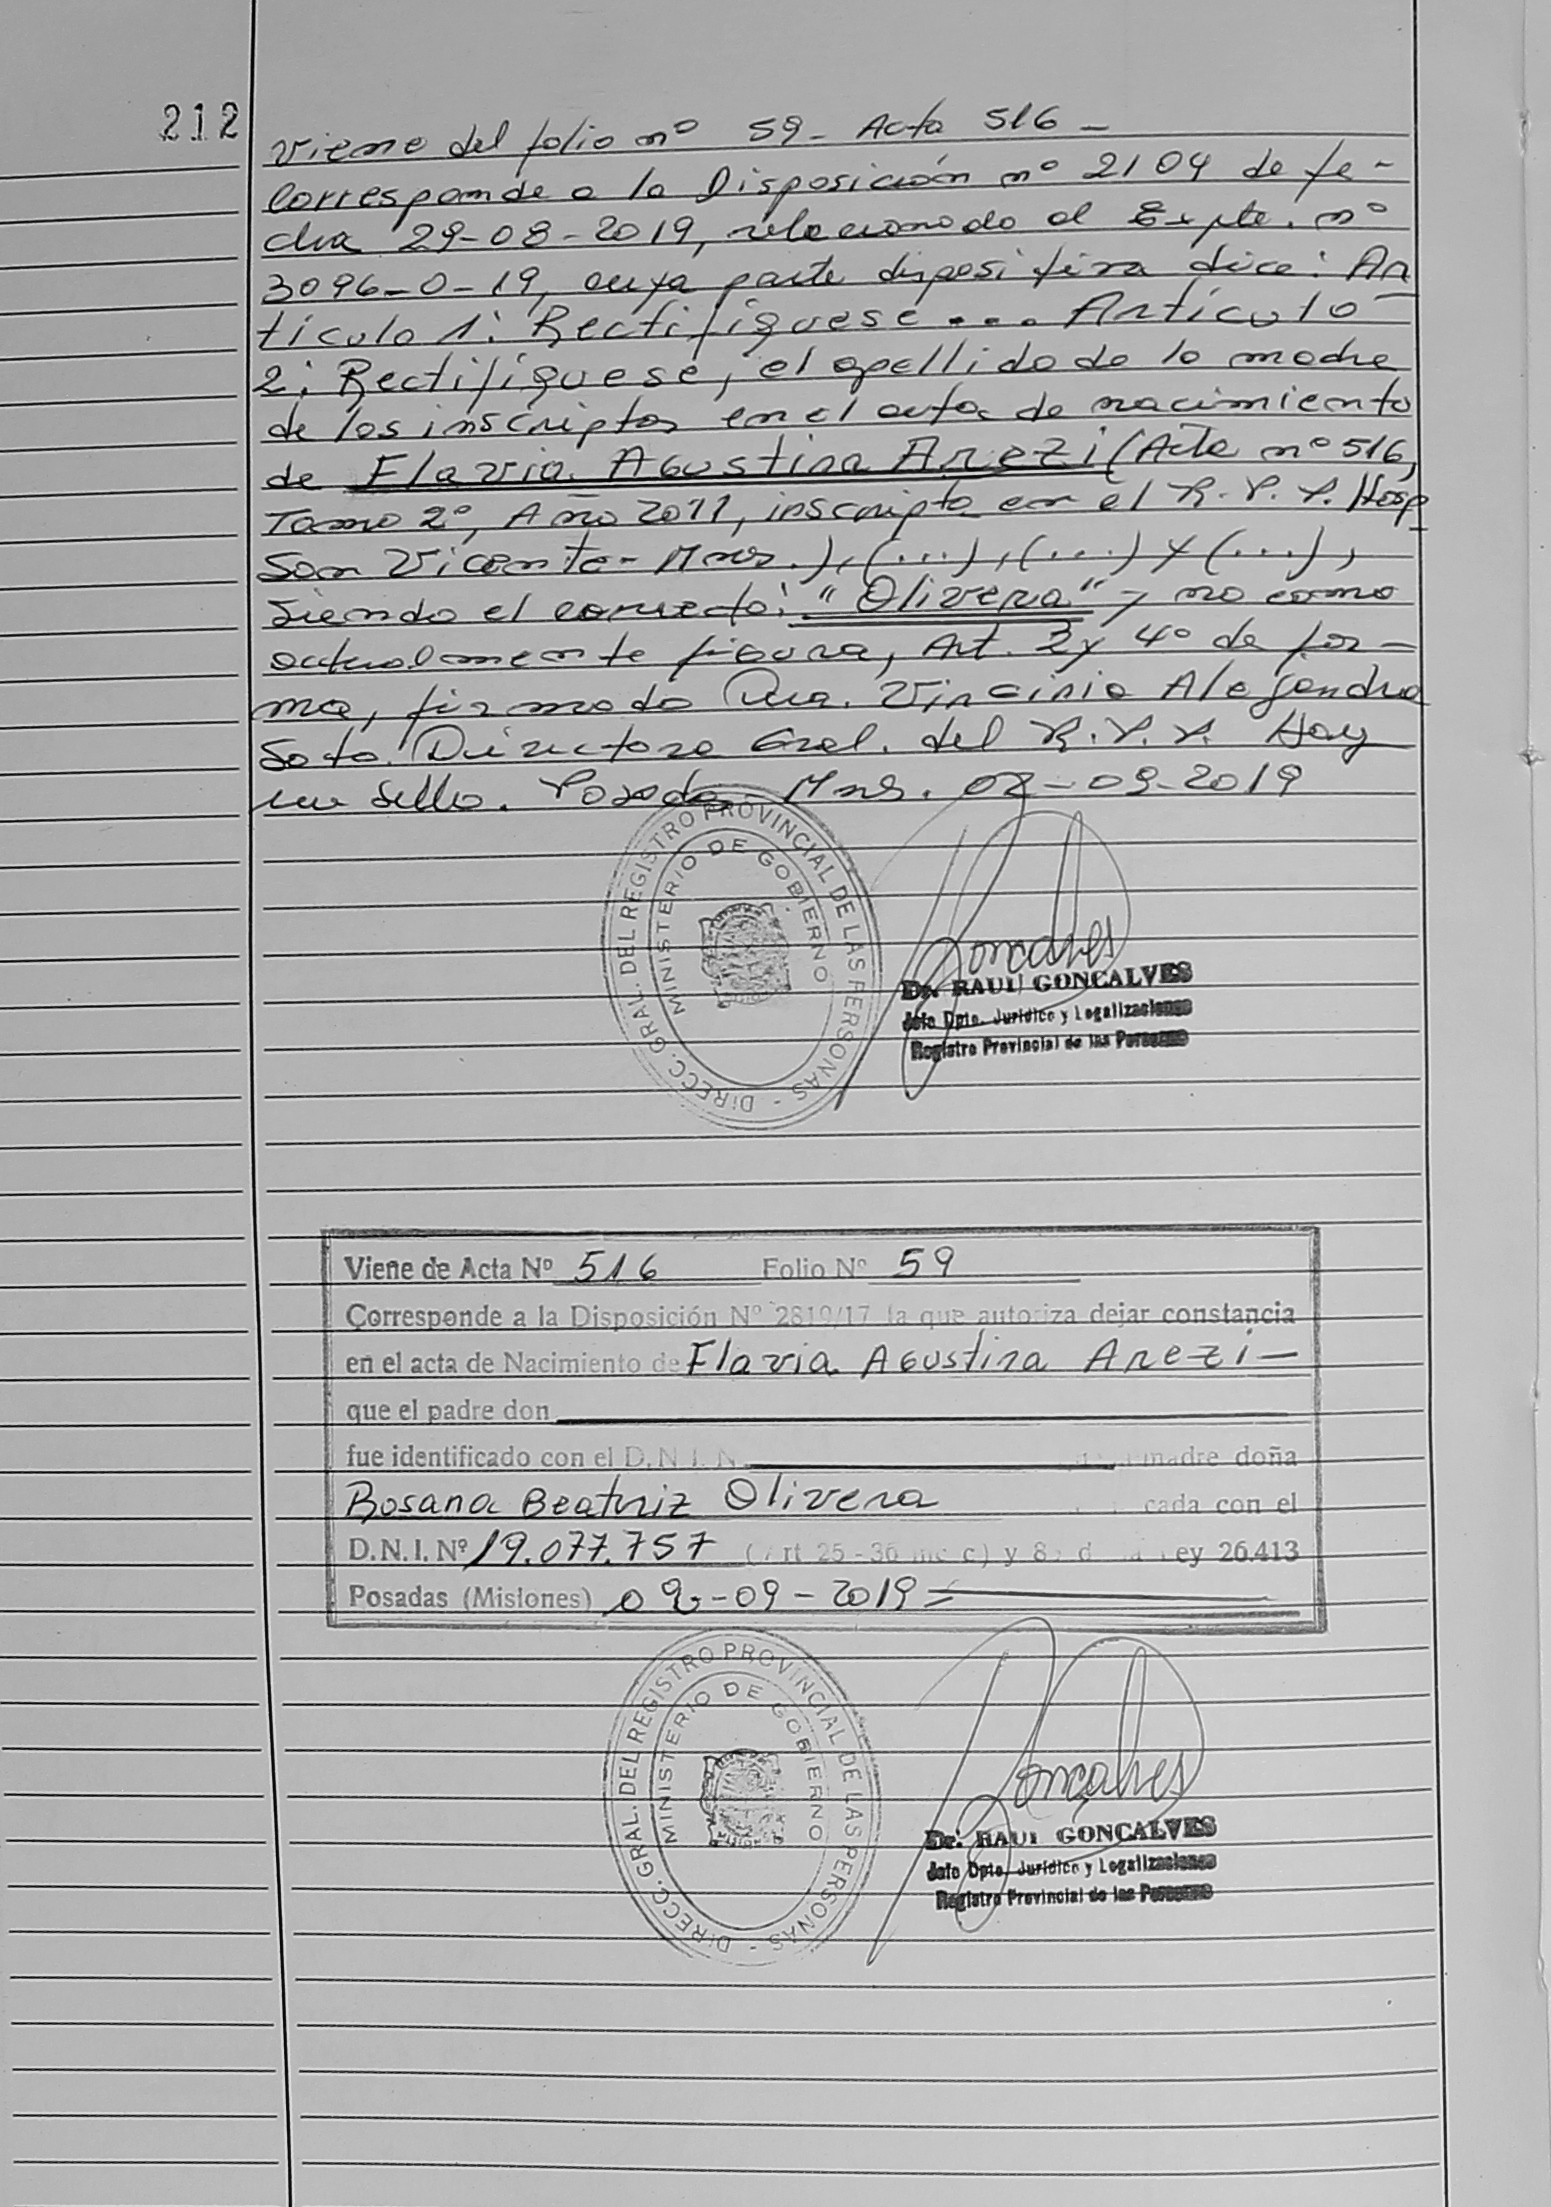 212
Viene del folio nº 59 - Acta 516 -
Corresponde a la Disposición nº 2104 de fe-
cha 29-08-2019, relacionado al Expte. nº
3096-0-19, cuya parte dispositiva dice: Ar
tículo 1: Rectifíquese ... Artículo
2: Rectifíquese, el apellido de la madre
de los inscriptos en el acta de nacimiento
de Flavia Agustina Arezi (Acta nº 516,
Tomo 2º, Año 2011, inscripta en el R.P.P. Hosp
San Vicente - Mnes.), (...), (...) y (...),
siendo el correcto: "Olivera" y no como
actualmente figura, Art. 3 y 4º de for-
ma, firmado Dra. Virginia Alejandra
Soto Directora Gral. del R.P.P. Hay
un sello. Posadas - Mnes. 02-09-2019
DIRECC. GRAL. DEL REGISTRO PROVINCIAL DE LAS PERSONAS -
MINISTERIO DE GOBIERNO
Goncalves
Dr. RAUL GONCALVES
Jefe Dpto. Jurídico y Legalizaciones
Registro Provincial de las Personas
Viene de Acta Nº 516 Folio Nº 59
Corresponde a la Disposición Nº 2819/17 la que autoriza dejar constancia
en el acta de Nacimiento de Flavia Agustina Arezi -
que el padre don
fue identificado con el D.N.I. N madre doña
Rosana Beatriz Olivera cada con el
D.N.I. Nº 19.077.757 (Art 25 - 36 inc c) y 8 d ey 26.413
Posadas (Misiones) 02-09-2019 =
DIRECC. GRAL. DEL REGISTRO PROVINCIAL DE LAS PERSONAS -
MINISTERIO DE GOBIERNO
Gonçalves
Dr. RAUL GONÇALVES
Jefe Dpto. Jurídico y Legalizaciones
Registro Provincial de las Personas